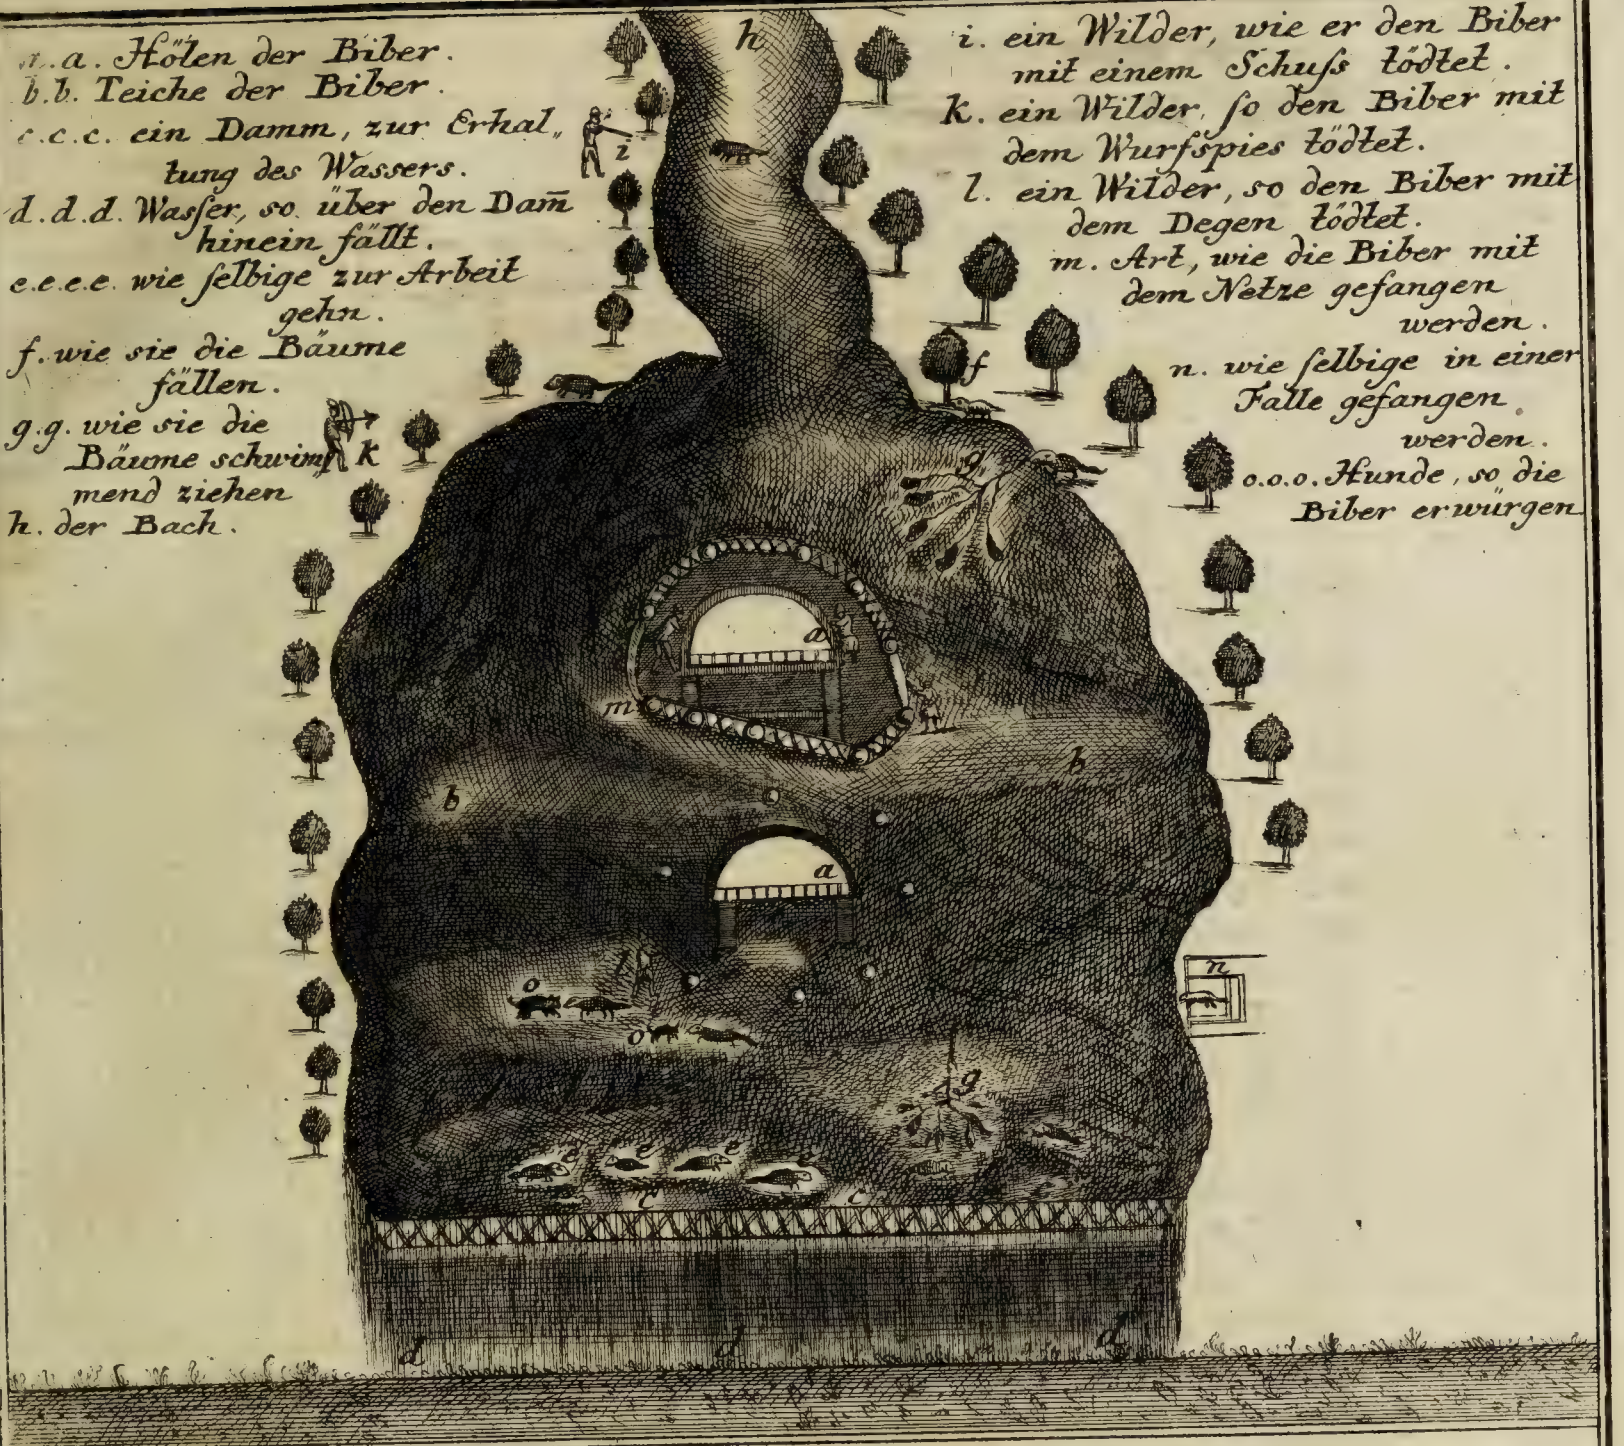 a.a. Hölen der Biber.
b.b. Teiche der Biber.
c.c.c. ein Damm, zur Erhal„
tung des Wassers.
d.d.d. Waſſer, so über den Dam̄
hinein fällt.
e.e.e.e. wie ſelbige zur Arbeit
gehn.
f. wie sie die Bäume
fällen.
g.g. wie sie die
Bäume schwim„
mend ziehen
h. der Bach.
i. ein Wilder, wie er den Biber
mit einem Schuſs tödtet.
k. ein Wilder, ſo den Biber mit
dem Wurfspies tödtet.
l. ein Wilder, so den Biber mit
dem Degen tödtet.
m. Art, wie die Biber mit
dem Netze gefangen
werden.
n. wie ſelbige in einer
Falle gefangen
werden.
o.o.o. Hunde, so die
Biber erwürgen
h
i
f
k
g
a
m
b
b
a
n
o
l
o
g
e
e
e
e
c
c
d
d
d